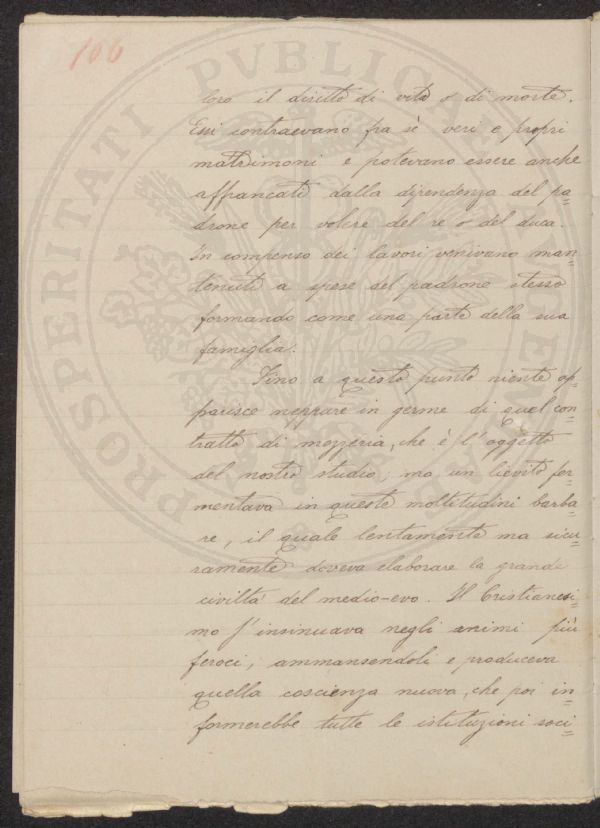 106
loro il diritto di vita o di morte.
Essi contraevano fra sè veri e propri
matrimoni e potevano essere anche
affrancati dalla dipendenza del pa=
drone per volere del re o del duca.
In compenso dei lavori venivano man=
tenuti a spese del padrone stesso
formando come una parte della sua
famiglia.
Fino a questo punto niente ap=
parisce neppure in germe di quel con=
tratto di mezzeria, che è l'oggetto
del nostro studio; ma un lievito fer=
mentava in queste moltitudini barba=
re, il quale lentamente ma sicu=
ramente doveva elaborare la grande
civiltà del medio-evo. Il Cristianesi=
mo s'insinuava negli animi più
feroci, ammansendoli e produceva
quella coscienza nuova, che poi in=
formerebbe tutte le istituzioni soci=
PROSPERITATI PVBLICAE